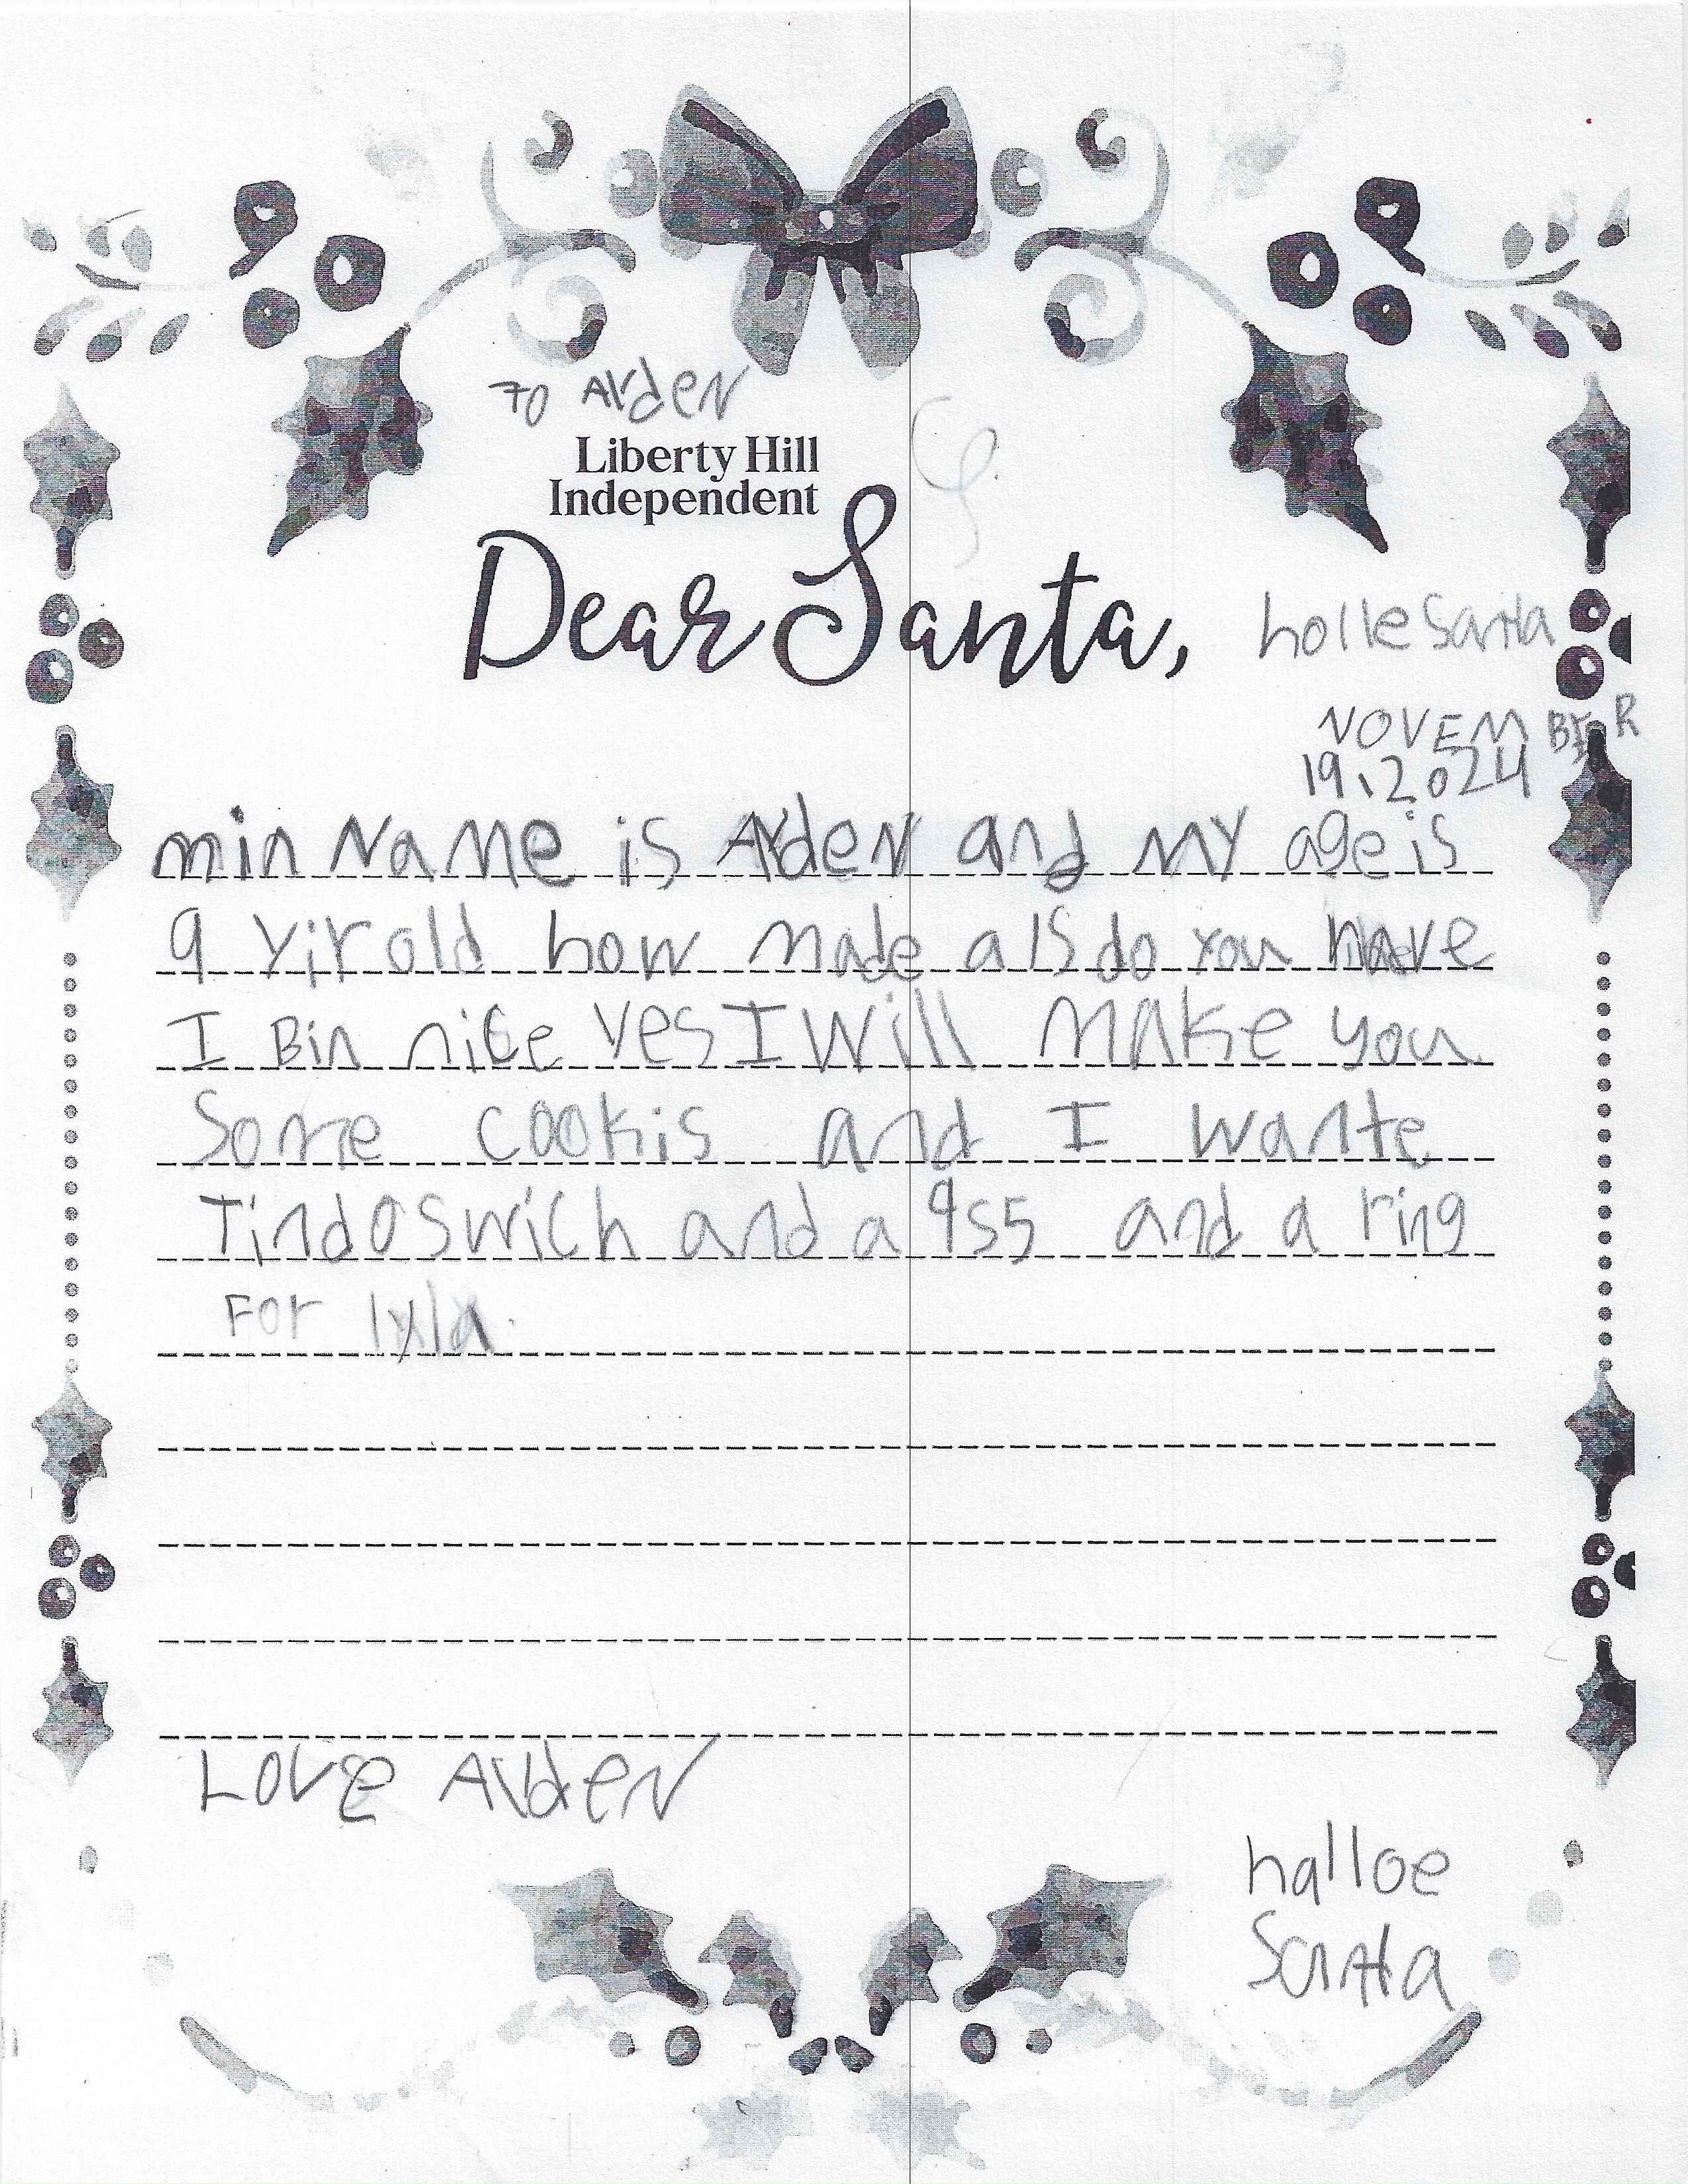 To Arden
Liberty Hill
Independent
Dear Santa,
holle Santa
NOVEMBER
19,2024
min Name is Arden and my age is
9 yir old how made als do you have
I Bin nice yes I will make you
Some cookis and I wante
Tindoswich and a ps5 and a ring
For lyla.
Love Arden
halloe
Santa